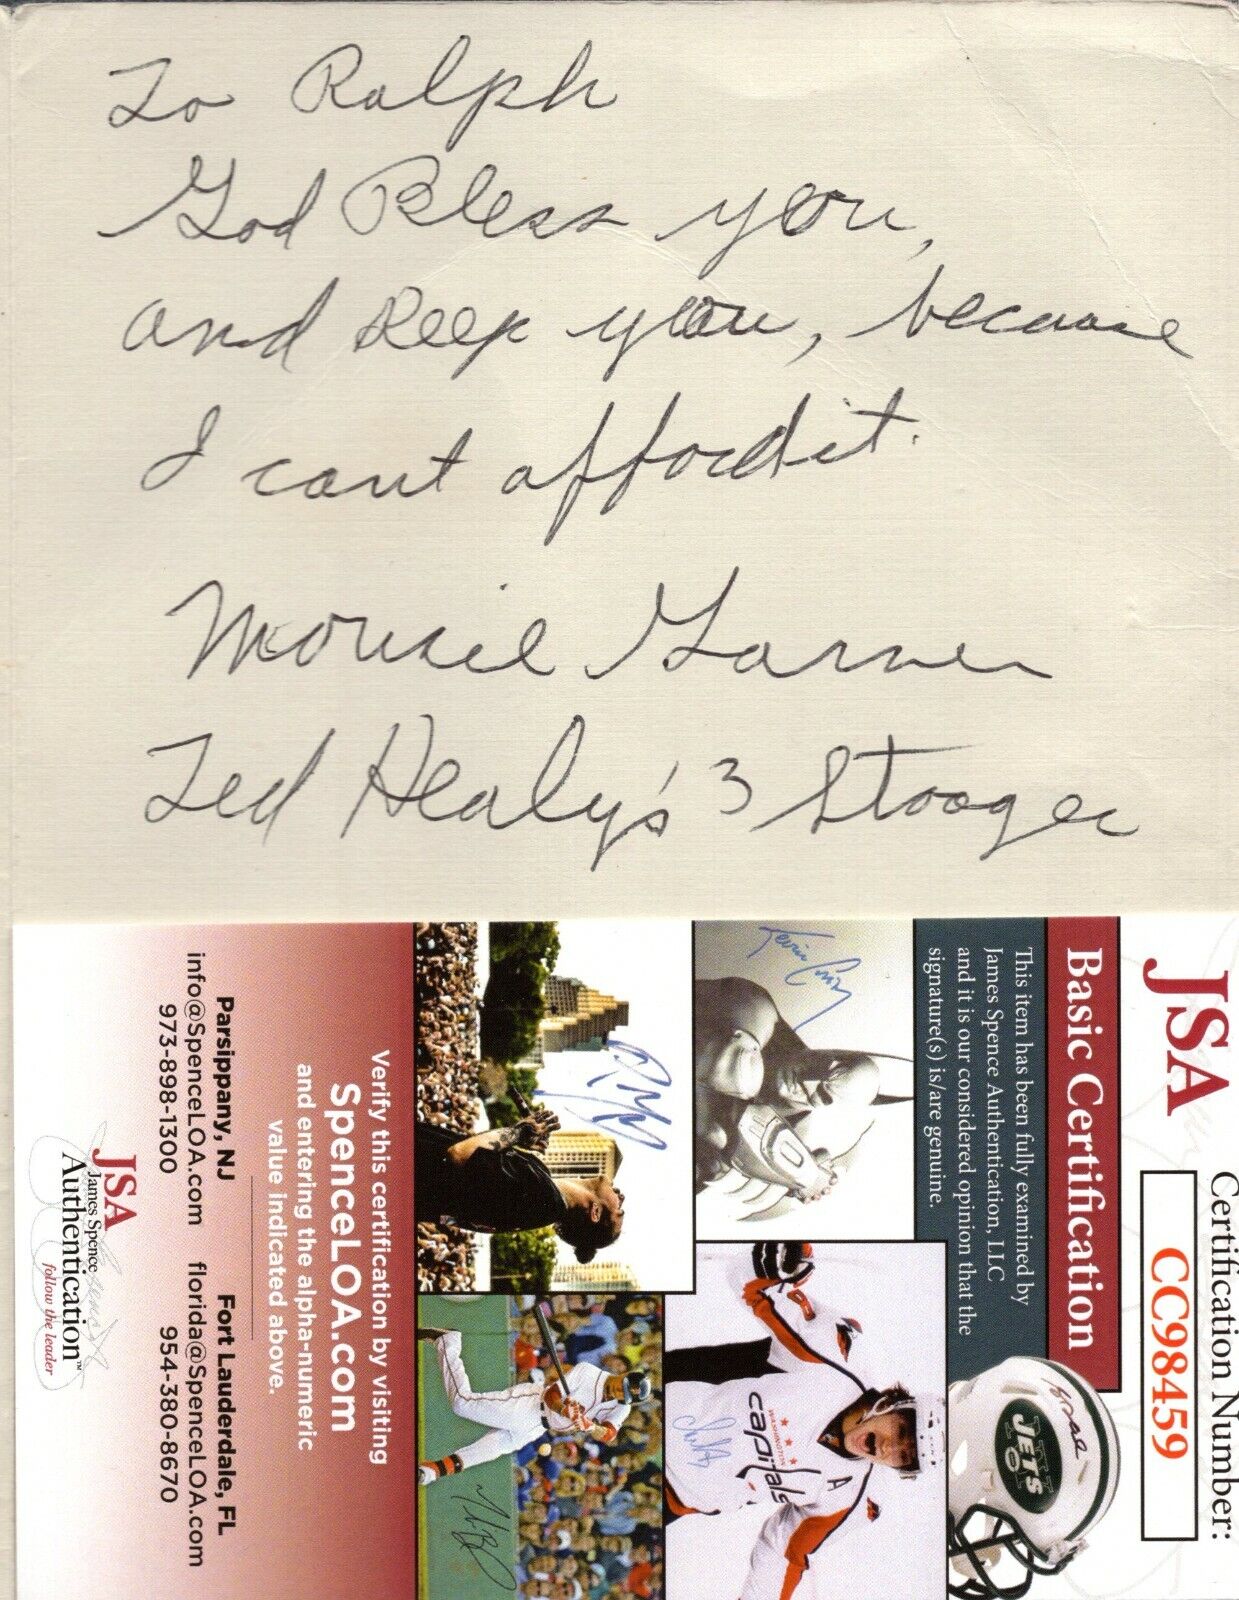 To Ralph
God Bless you,
and Keep you, because
I cant affordit.
Mousie Garner
Ted Healy's 3 Stooges
JSA
Certification Number:
CC98459
Basic Certification
This item has been fully examined by
James Spence Authentication, LLC
and it is our considered opinion that the
signature(s) is/are genuine.
JETS
WASHINGTON
capitals
A
Verify this certification by visiting
SpenceLOA.com
and entering the alpha-numeric
value indicated above.
Parsippany, NJ
info@SpenceLOA.com
973-898-1300
Fort Lauderdale, FL
florida@SpenceLOA.com
954-380-8670
JSA
James Spence
Authentication™
follow the leader